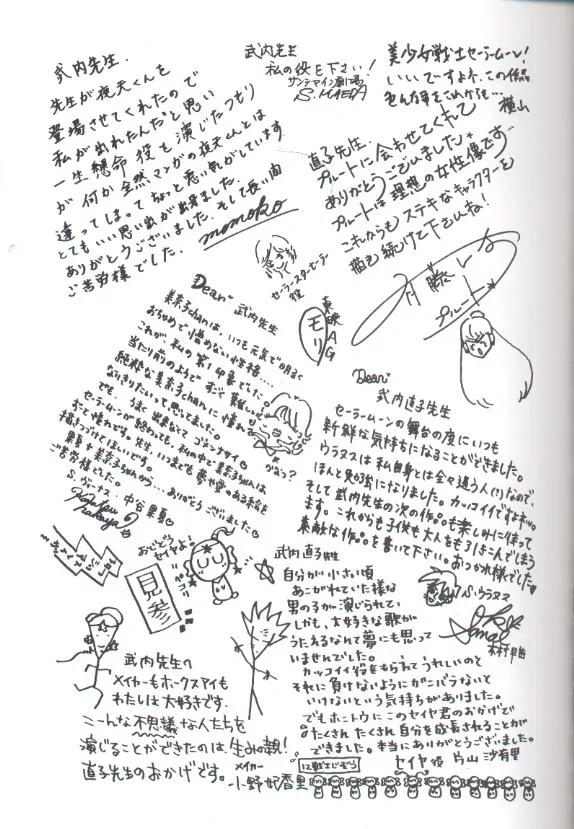 武内先生.
先生が夜天くんを
登場させてくれたので
私が出れたんだと思い
一生懸命役を演じたつもり
が何か全然マンガの夜天くんとは
違ってしまってちょっと悪い気がしています.
とてもいい思い出が出来ました.
ありがとうございました. そして長い間
ご苦労様でした.
momoko
武内先生
私の役を下さい!
サンデマイン劇場
S.MAEDA
美少女戦士セーラームーン!
いいですよネ、この作品
色んな事をこめても…
横山
直子先生.
プルートに会わせてくれて
ありがとうございました。
プルートは理想の女性像です…
これからもステキなキャラクターを
描き続けて下さいね!
プルート
セーラースターヒーラー
役
東映AG
モリ
Dear 武内先生
美奈子chanは、いつも元気で明るく
おちゃめで憎めない性格…
これが、私の第1印象でした。
当たり前のようで すごく難しい
純粋な美奈子chanに憧れ
なりきりたいって、思ってました。
でも、うまく出来なくてゴメンナサイ
セーラームーンが終わっても、私の中に美奈子chanは
ずっと憧れです。先生、いつまでも夢や愛のある作品を
描きつづけてほしいです。
ご苦労様でした。
ありがとうございました
S.ヴィーナス・中谷果夏
Dear
武内直子先生
セーラームーンの舞台の度にいつも
新鮮な気持ちになることができました。
ウラヌスは私自身とは全々違う人(!)なので、
ほんと勉強になりました。カッコイイですよネッ。
そして武内先生の次の作品も楽しみに待って
ます。これからも子供も大人をもまきこんでしまう
素敵な作品を書いて下さい。おつかれ様でした
S・ウラヌス
木村早苗
おじぞう
セイヤよ!
見参
武内直子先生
自分が小さい頃
あこがれていた様な
男の子が演じられて、
しかも、大好きな歌が
うたえるなんて夢にも思って
いませんでした。
カッコイイ役をもられてうれしいのと
それに負けないようにがンバラないと
いけないという気持ちがありました。
でもホントウにこのセイヤ君のおかげで
たくさんたくさん自分を成長されることが
できました。本当にありがとうございました。
セイヤ役 片山 沙有里
12戦士じぞう
武内先生へ
メイカーもホークスアイも
わたしは大好きです.
こーんな不思議な人たちを
演じることができたのは、生みの親!
直子先生のおかげです。
メイカー
小野妃香里